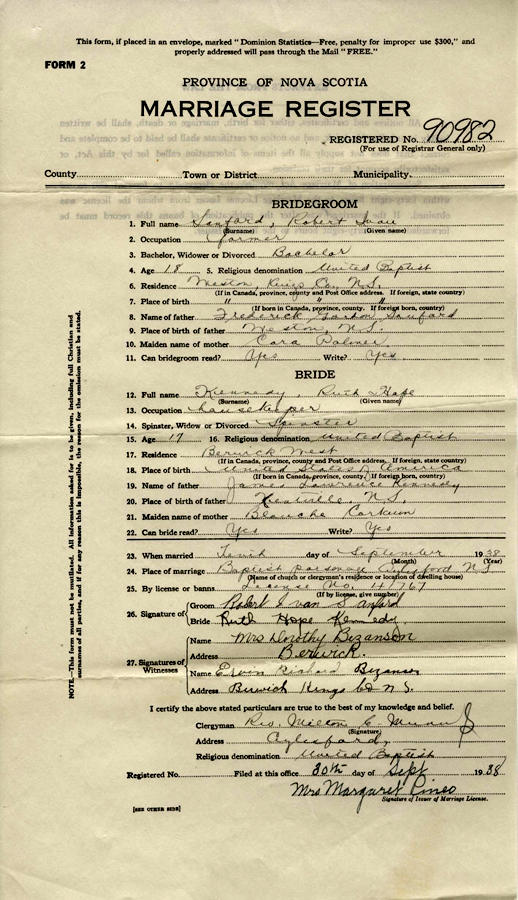 This form, if placed in an envelope, marked "Dominion Statistics—Free, penalty for improper use $300," and
properly addressed will pass through the Mail "FREE."
FORM 2
PROVINCE OF NOVA SCOTIA
MARRIAGE REGISTER
REGISTERED No. 90982
(For use of Registrar General only)
County Town or District Municipality.
BRIDEGROOM
1. Full name Sanford, Robert Ivan
(Surname) (Given name)
2. Occupation Farmer
3. Bachelor, Widower or Divorced Bachelor
4. Age 18 5. Religious denomination United Baptist
6. Residence Weston, Kings Co. N.S.
(If in Canada, province, county and Post Office address. If foreign, state country)
7. Place of birth " " "
(If born in Canada, province, county. If foreign born, country)
8. Name of father Frederick Sanford
9. Place of father Weston, N.S.
10. Maiden name of mother Cora Palmer
11. Can bridegroom read? Yes Write? Yes
BRIDE
12. Full name Kennedy, Ruth Hope
(Surname) (Given name)
13. Occupation housekeeper
14. Spinster, Widow or Divorced Spinster
15. Age 17 16. Religious denomination United Baptist
17. Residence Berwick West
(If in Canada, province, county and Post Office address. If foreign, state country)
18. Place of birth United States of America
(If born in Canada, province, county. If foreign born, country)
19. Name of father James Lawrence Kennedy
20. Place of birth of father N.S.
21. Maiden name of mother Blanche Corkum
22. Can bride read? Yes Write? Yes
23. When married Tenth day of September 1938
(Month) (Year)
24. Place of marriage Baptist parsonage Aylesford N.S.
(Name of church or clergyman's residence or location of dwelling house)
25. By license or banns License No. 41767
(If by license, give number)
26. Signature of
Groom Robert Ivan Sanford
Bride Ruth Hope Kennedy
27. Signatures of Witnesses
Name Mrs Dorothy Bezanson
Address Berwick.
Name Ervin Richard Bezanson
Address Berwick Kings Co N.S.
I certify the above stated particulars are true to the best of my knowledge and belief.
Clergyman Rev. Milton C. Munn
(Signature)
Address Aylesford,
Religious denomination United Baptist
Registered No. Filed at this office 30th day of Sept 1938
Mrs Margaret Pineo
Signature of Issuer of Marriage License.
[SEE OTHER SIDE]
NOTE.—This form must not be mutilated. All information asked for is to be given, including full Christian and
surnames of all parties, and if for any reason this is impossible, the reason for the omission must be stated.